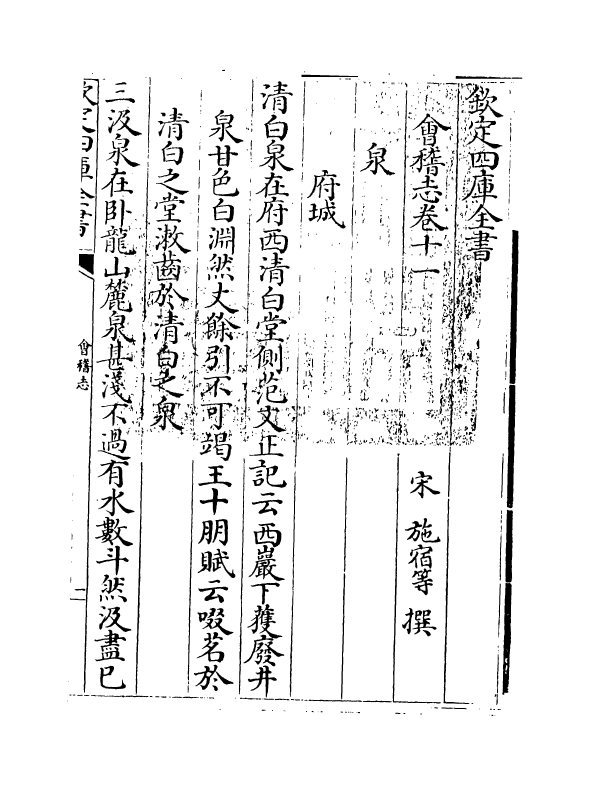 欽定四庫全書
會稽志卷十一
宋 施宿等 撰
泉
府城
清白泉在府西清白堂側范文正記云西巖下獲廢井
泉甘色白淵然丈餘引不可竭王十朋賦云啜茗於
清白之堂漱齒於清白之泉
三汲泉在卧龍山麓泉甚淺不過有水數斗然汲盡已
欽定四庫全書
會稽志